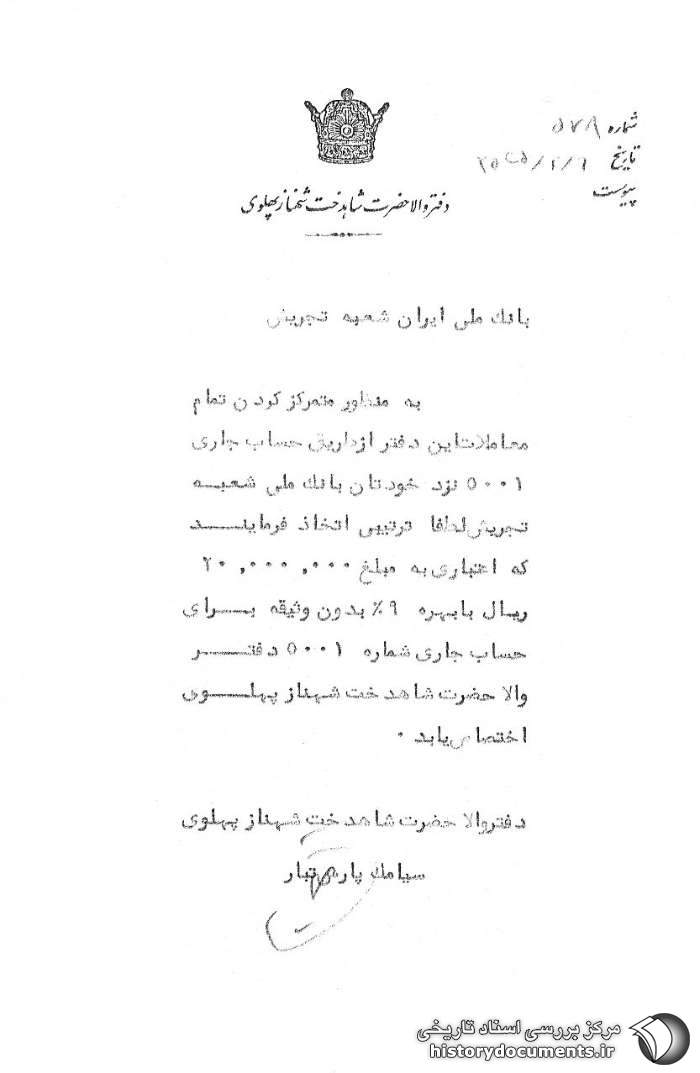 شماره ۵۷۸۹
تاریخ
پیوست
دفتر والاحضرت شاهدخت شهناز پهلوی
بانک ملی ایران شعبه تجریش
به منظور متمرکز کردن تمام
معاملات این دفتر از طریق حساب جاری
۵۰۰۱ نزد خودتان بانک ملی شعبه
تجریش لطفا ترتیبی اتخاذ فرمایند
که اعتباری به مبلغ ۲۰,۰۰۰,۰۰۰
ریال با بهره ۹٪ بدون وثیقه برای
حساب جاری شماره ۵۰۰۱ دفتر
والا حضرت شاهدخت شهناز پهلوی
اختصاص یابد .
دفتر والا حضرت شاهدخت شهناز پهلوی
سیامک پارسی تبار
مرکز بررسی اسناد تاریخی
historydocuments.ir